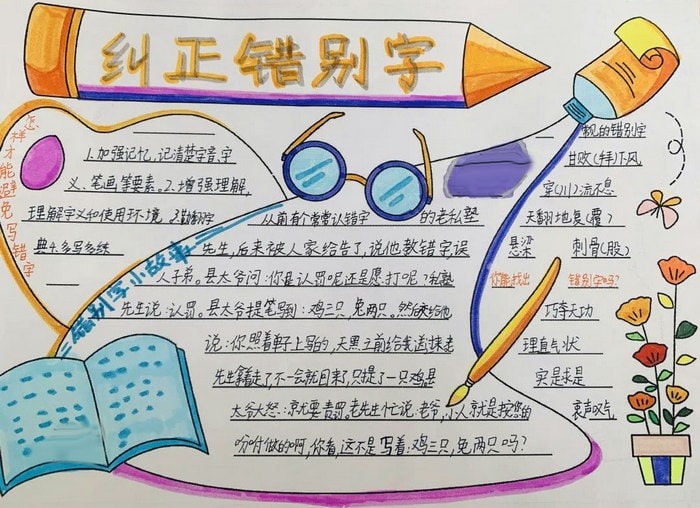 纠正错别字
怎样才能避免写错字
1.加强记忆,记清楚字音,字
义、笔画等要素。2.增强理解,
理解字义和使用环境。3.勤翻字
典4.多写多练
错别字小故事
从前有个常常认错字的老私塾
先生,后来被人家给告了,说他教错字误
人子弟。县太爷问:你是认罚呢还是愿打呢?私塾
先生说:认罚。县太爷提笔写到:鸡三只,兔两只。然后交给他
说:你照着单子上写的,天黑之前给我送
先生拿着走了,不一会就回来了,只提了一只鸡
太爷大怒:责罚。老先生忙说:老爷,小人就是按您的
吩咐做的啊,你看,这不是写着:鸡三只,兔两只吗?
常见的错别字
甘败(拜)下风
穿(川)流不息
天翻地复(覆)
悬梁刺骨(股)
你能找出错别字吗?
巧夺天功
理直气状
实是求是
哀声叹气